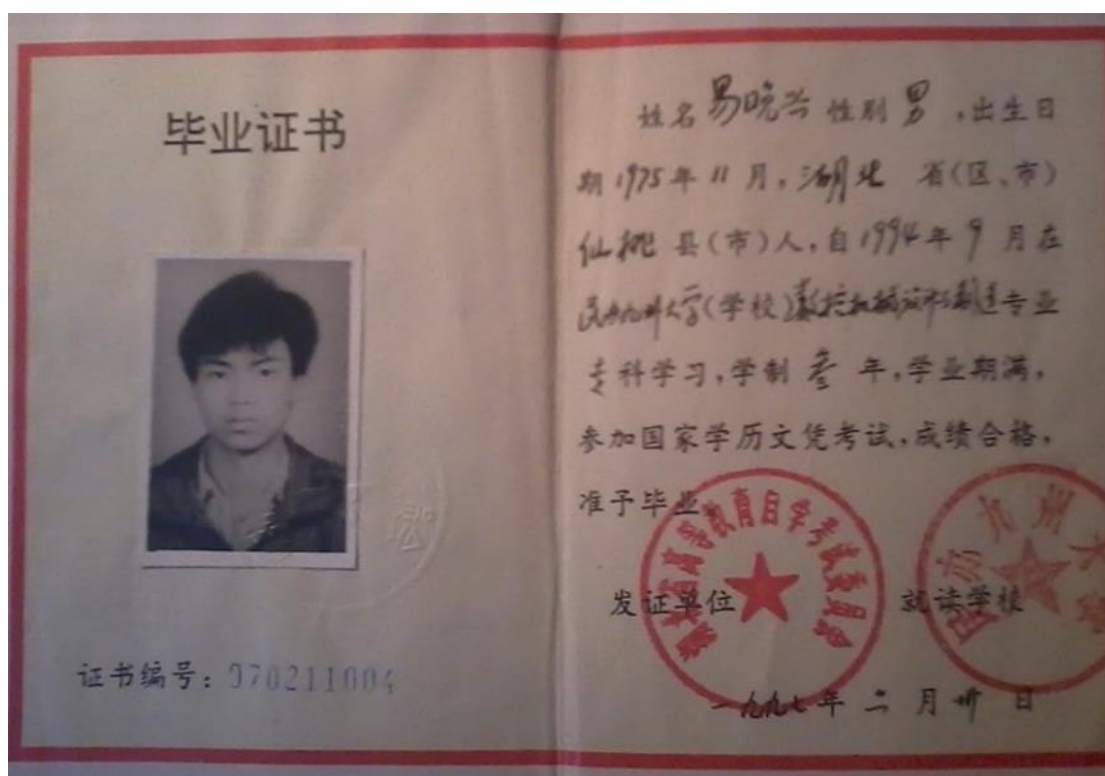 毕业证书
证书编号：970211004
姓名 易晓兴 性别 男 ，出生日
期1975年11月，湖北 省(区、市)
仙桃 县(市)人，自1994年9月在
民办九州大学(学校)数控机械设计与制造专业
专科学习，学制 叁 年，学业期满，
参加国家学历文凭考试，成绩合格，
准予毕业
湖北省高等教育自学考试委员会
民办九州大学
发证单位 就读学校
一九九七年二月卅日